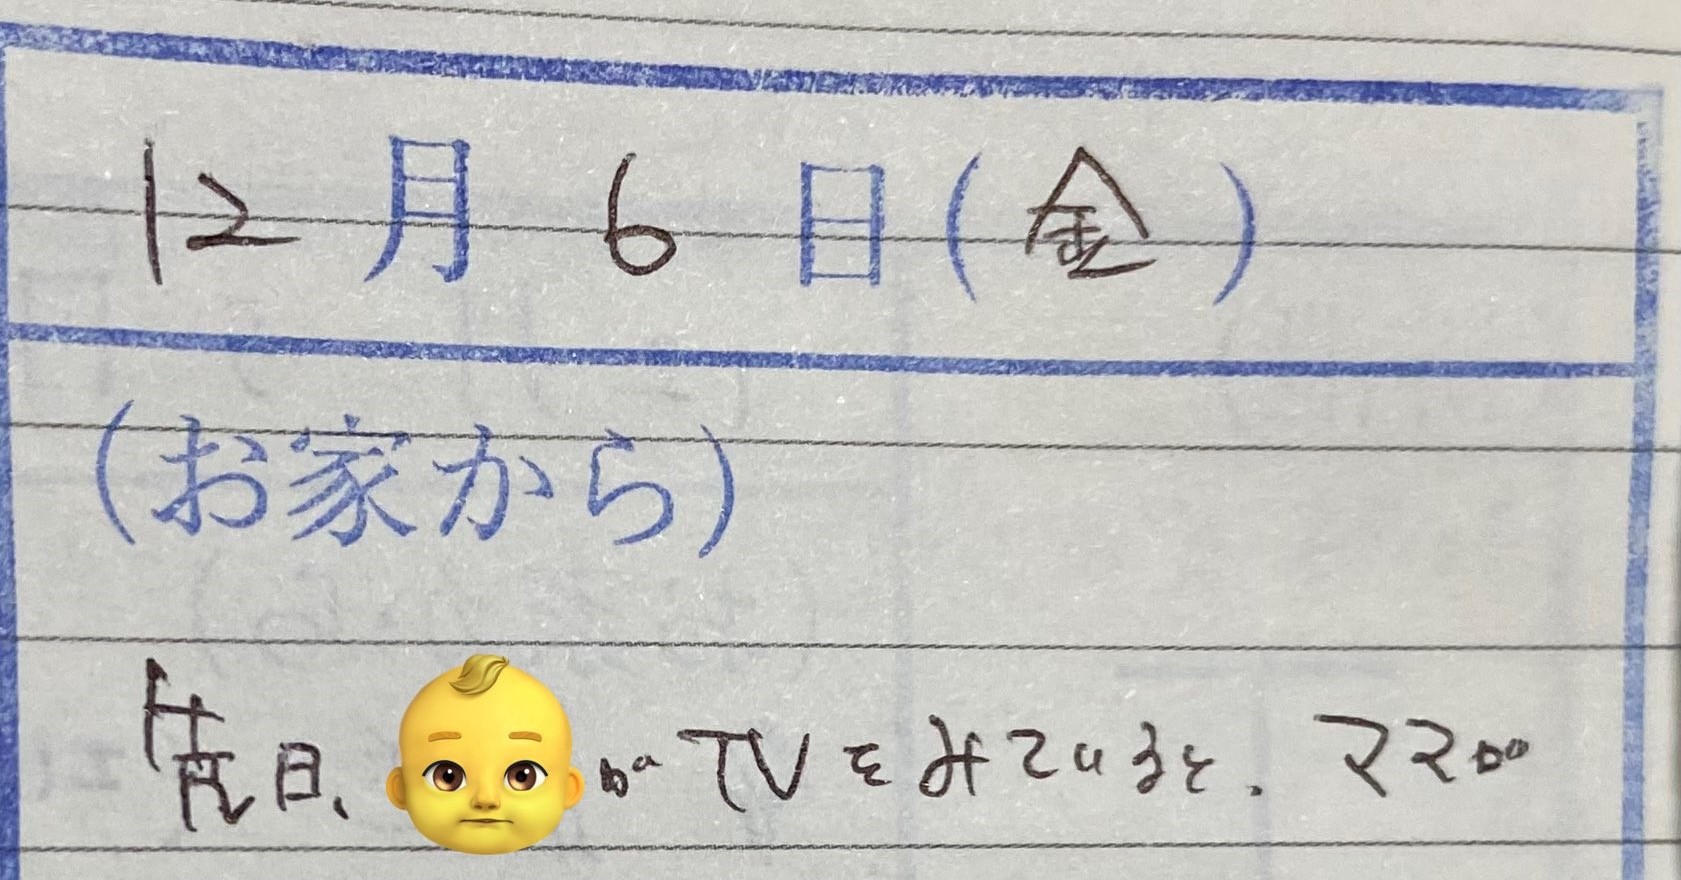 12月6日(金)
(お家から)
先日、がTVをみていると、ママが